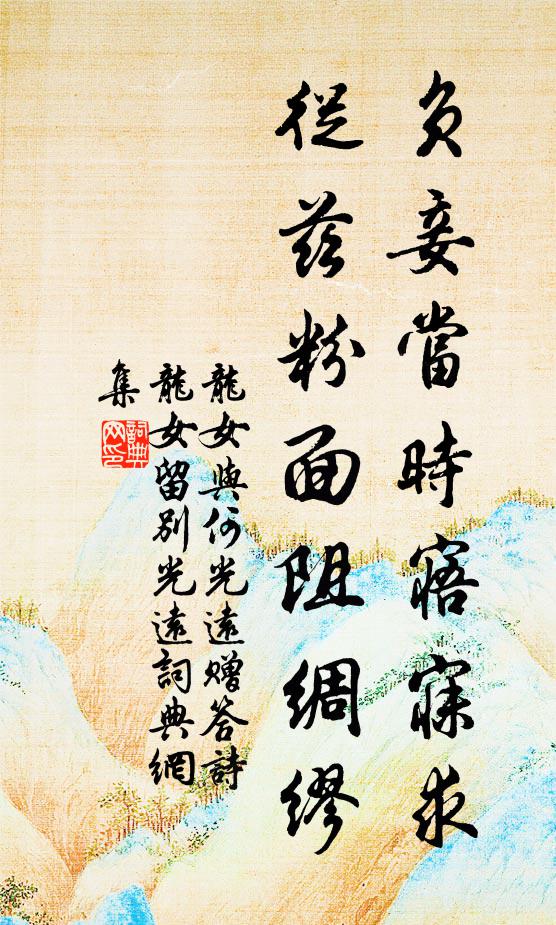 負妾當時寤寐求
從茲粉面阻綢繆
龍女與何光遠贈答詩
龍女留別光遠詞典網
集
詞典网印